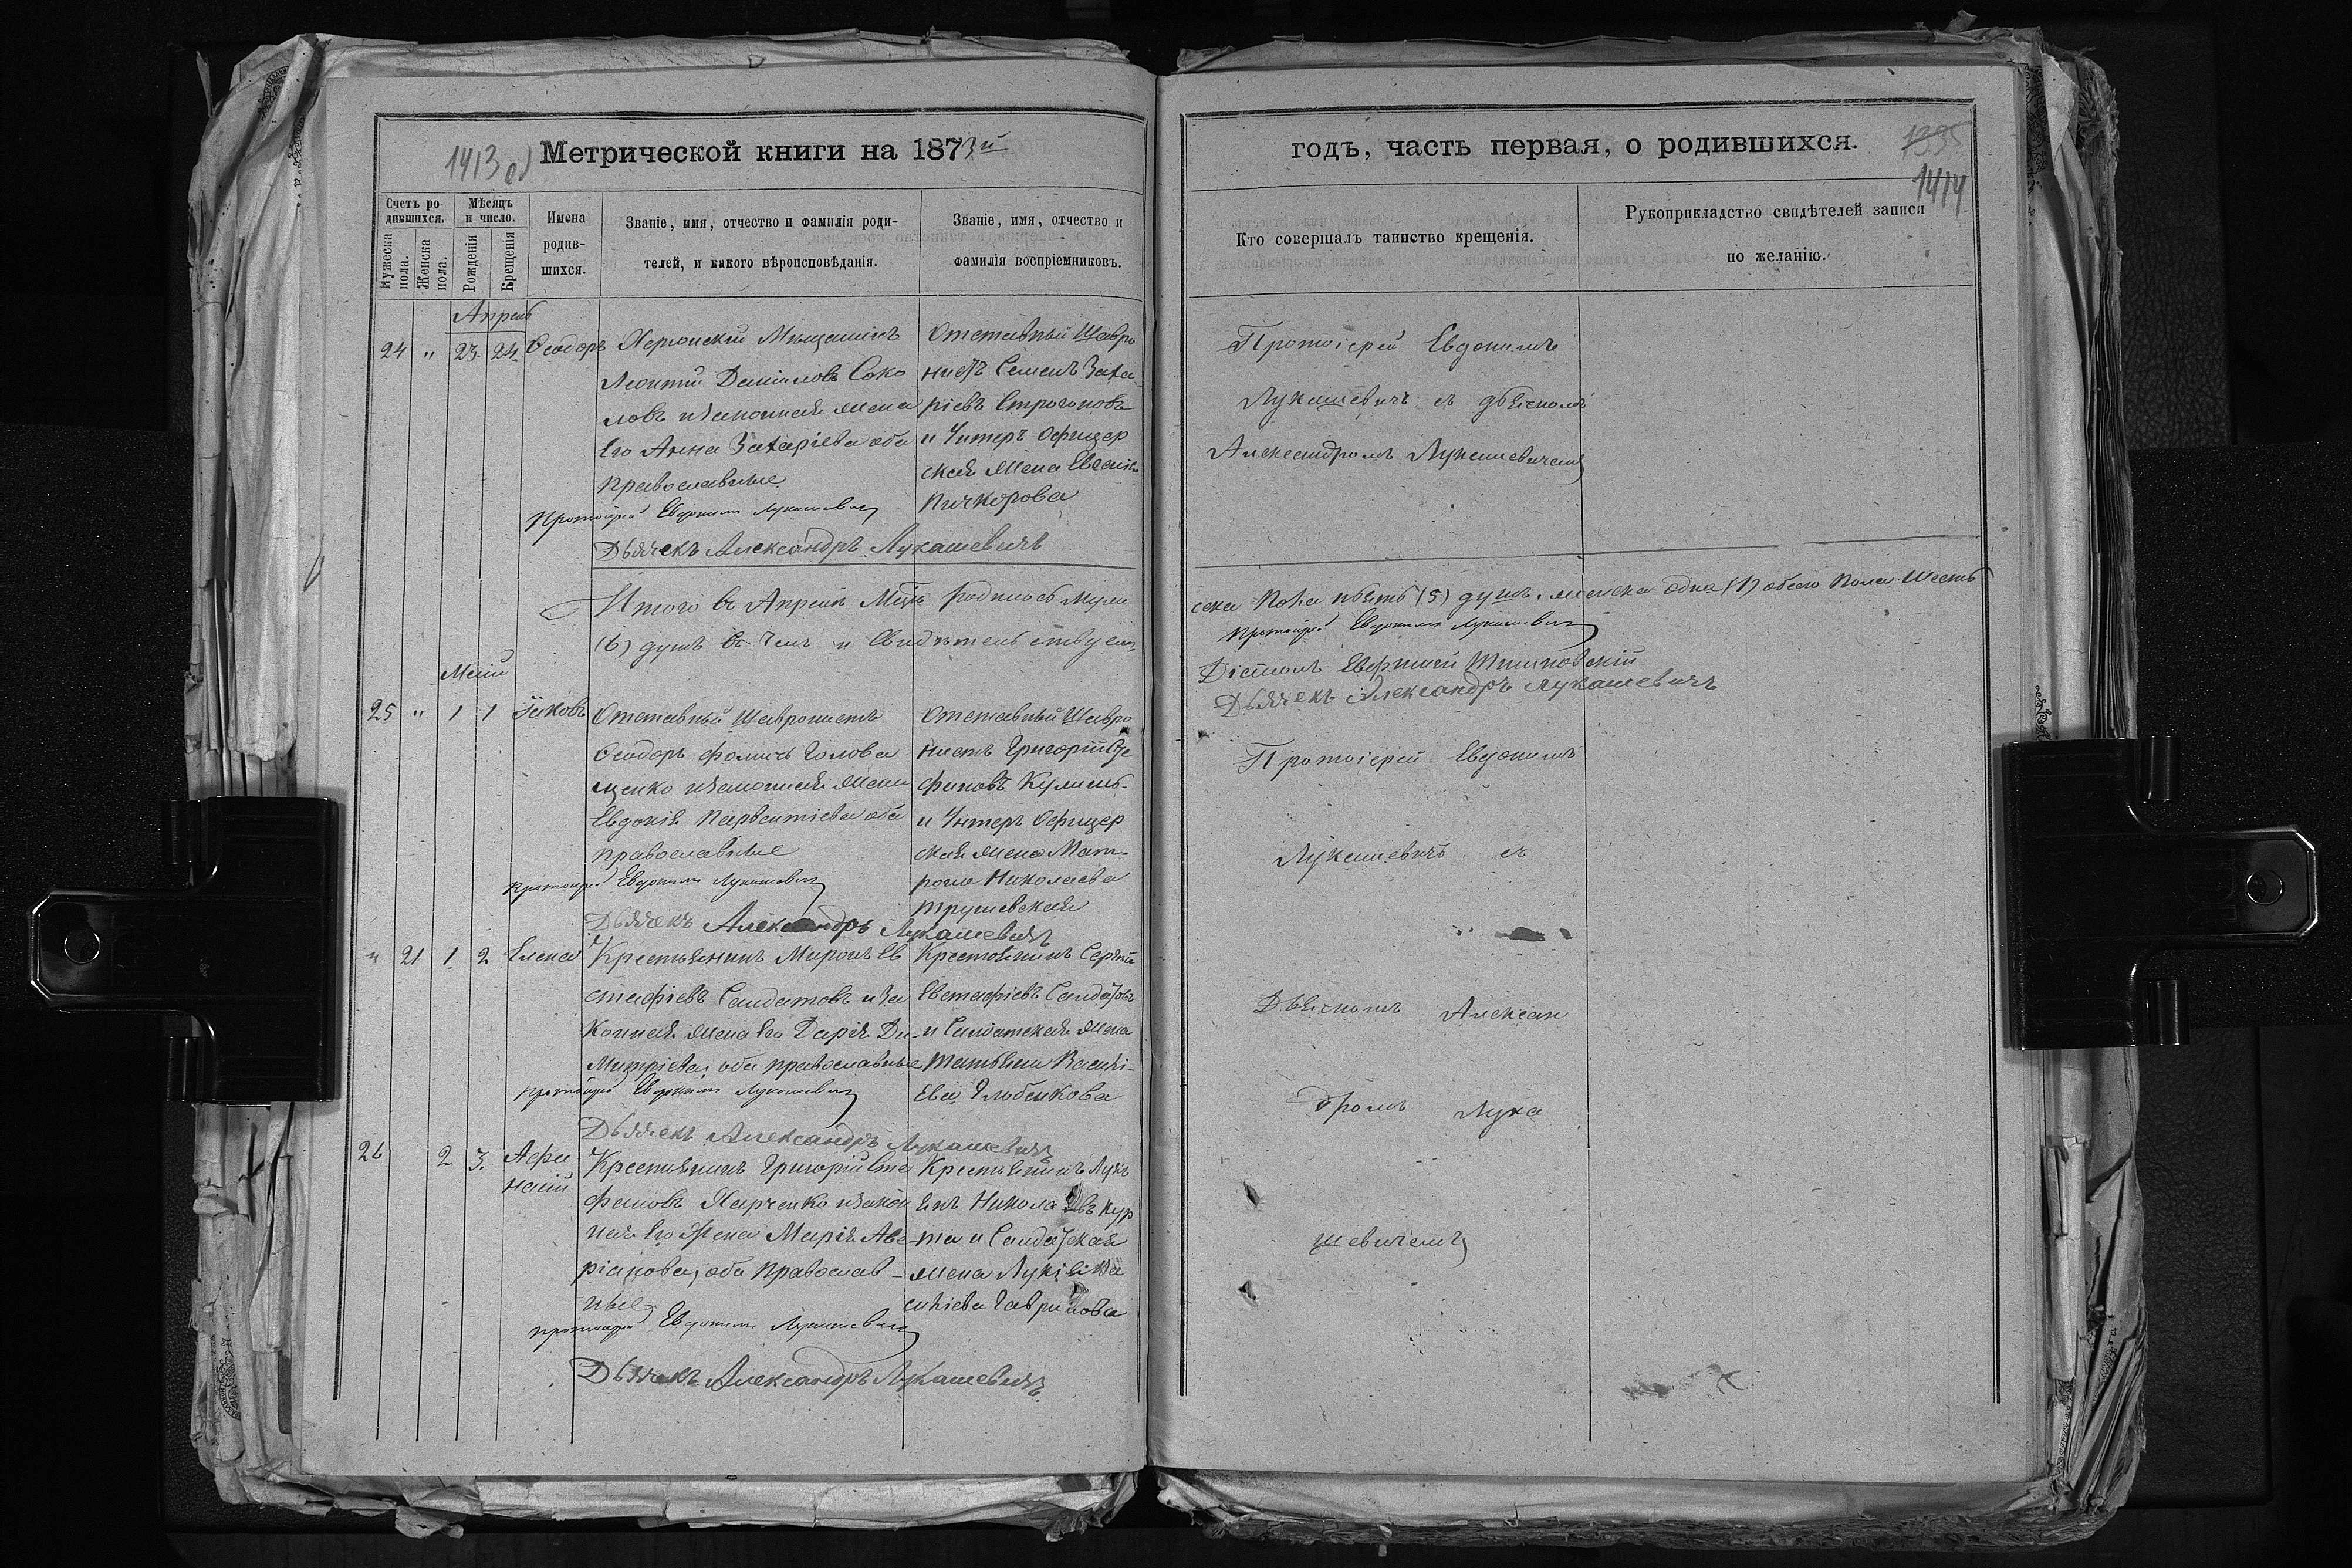 1413 об
Метрической книги на 1873й
годъ, часть первая, о родившихся.
1395
1414
Счетъ ро-
дившихся.
Мѣсяцъ
и число.
Мужеска пола.
Женска пола.
Рожденія
Крещенія
Имена
родив-
шихся.
Званіе, имя, отчество и фамилія роди-
телей, и какого вѣроисповѣданія.
Званіе, имя, отчество и
фамилія воспріемниковъ.
Кто совершалъ таинство крещенія.
Рукоприкладство свидѣтелей записи
по желанію.
Апрель
24 " 23. 24. Ѳеодоръ
Херсонскій Мещанинъ
Леонтій Даніиловъ Соко
ловъ изаконная жена
Его Анна Захаріева оба
православные
Отставный Шавро
нистъ Семенъ Заха
ріевъ Строгоновъ
и Унтеръ Офицер
ская жена Евгенія
Пичкорова
Протоіерей Евдокимъ Лукашевичъ
Дьячекъ Александръ Лукашевичъ
Протоіерей Евдокимъ
Лукашевичъ съ дьякомъ
Александромъ Лукашевичемъ
Итого въ Апрелѣ Мцѣ родилось муже
ска пола пять (5) душъ. женска одна (1) обоего пола шесть
(6) душъ въ чемъ и свидѣтельствуемъ
Протоіерей Евдокимъ Лукашевичъ
Діаконъ Евфимій
Дьячекъ Александръ Лукашевичъ
Май
25 " 1 1 Іяковъ
Отставный Шавронистъ
Ѳеодоръ Фомичъ Голова
щенко изаконная жена
Евдокія Парвентіева оба
православные
Отставный Шавро
нистъ Григорій
финовъ
и Унтеръ Офицер
ская жена Мат-
рона Николаева
Трушевская
Протоіерей Евдокимъ Лукашевичъ
Дьячекъ Александръ Лукашевичъ
Протоіерей Евдокимъ
Лукашевичъ съ
" 21 1. 2 Елена
Крестьянинъ Миронъ Ев
стафіевъ Солдатовъ иза
конная жена его Дарія Ди-
митріева, оба православные
Крестьянинъ Сергѣй
Евстафіевъ Солдатовъ
и Солдатская жена
Татьяна Васили-
ева
Протоіерей Евдокимъ Лукашевичъ
Дьячекъ Александръ Лукашевичъ
Дьякомъ Алексан
дромъ Лука
шевичемъ
26 2 3. Афа
насій
Крестьянинъ Григорій Сте
фановъ Харченко изакон
ная его Жена Марія Аве
ріанова, оба Православ-
ные
Крестьянинъ Лукъ
янъ Николаевъ Кур
та и Солдатская
жена Лукія Ва
силіева Гаврилова
Протоіерей Евдокимъ Лукашевичъ
Дьячекъ Александръ Лукашевичъ